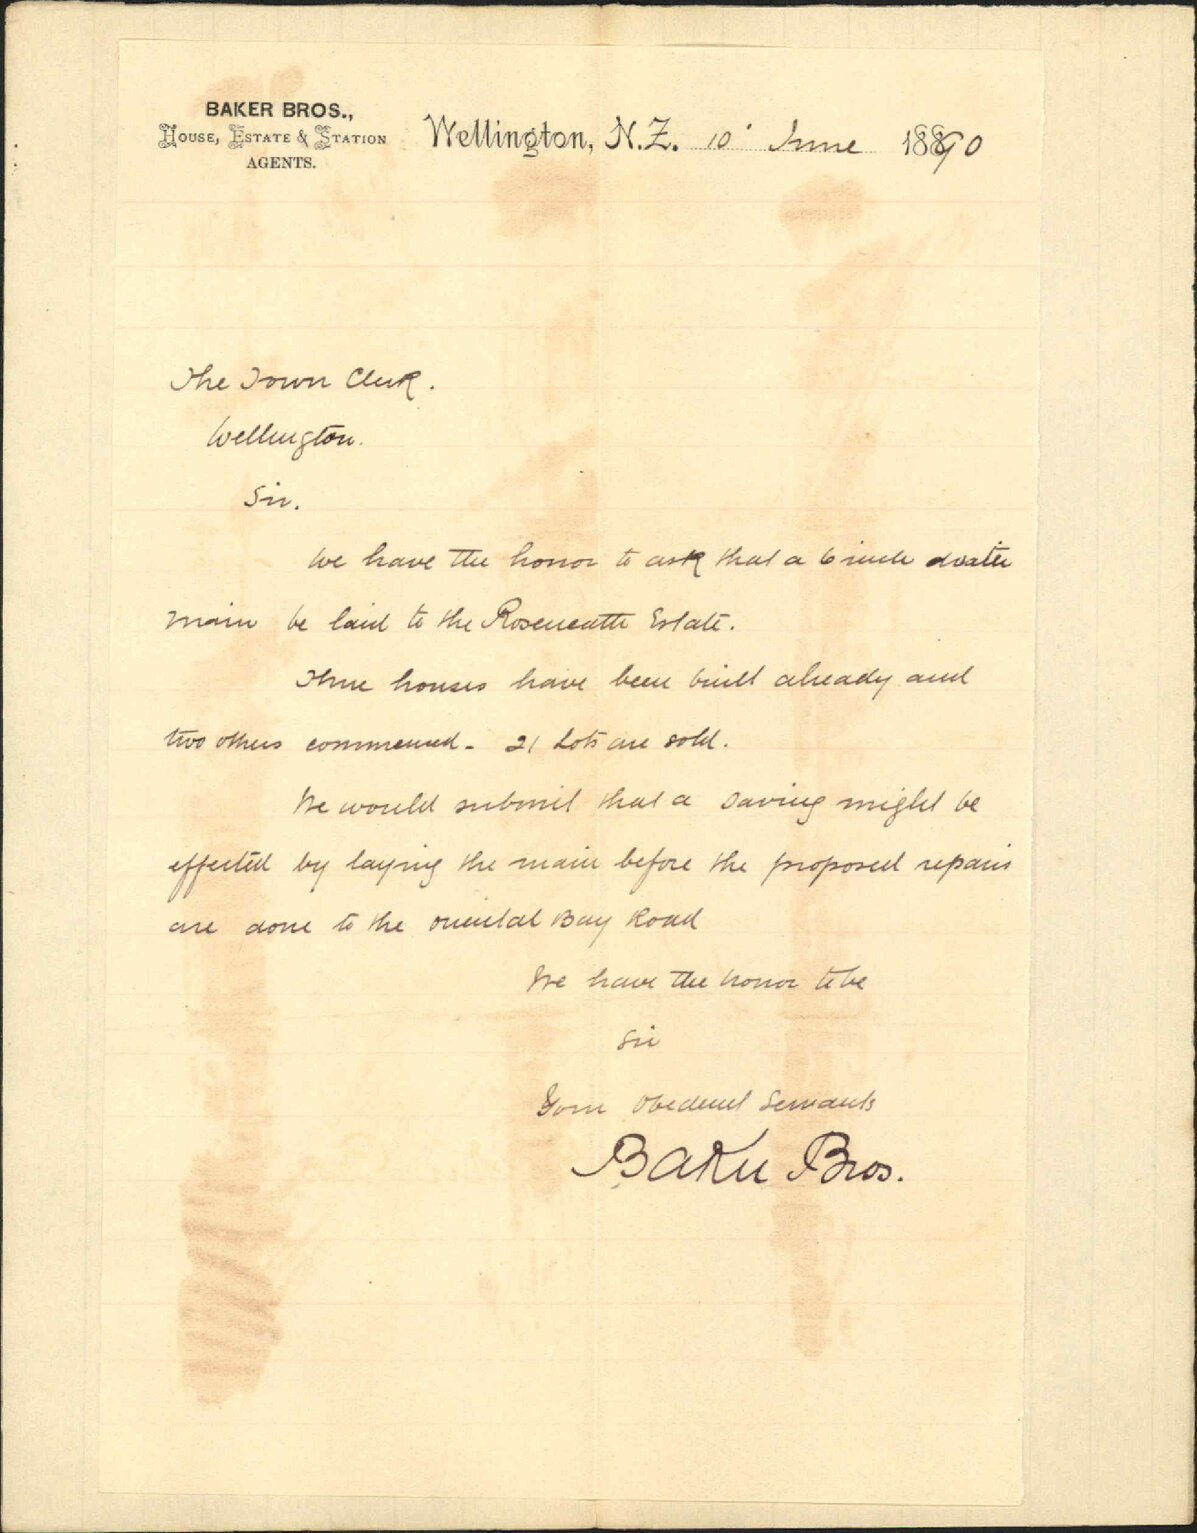 BAKER BROS.,
HOUSE, ESTATE & STATION
AGENTS.
Wellington, N.Z. 10 June 1890
The Town Clerk.
Wellington.
Sir.
We have the honor to ask that a 6 inch water
main be laid to the Roseneath Estate.
Three houses have been built already and
two others commenced - 21 Lots are sold.
We would submit that a saving might be
effected by laying the main before the proposed repairs
are done to the Oriental Bay Road
We have the honor to be
Sir
Your Obedient Servants
Baker Bros.